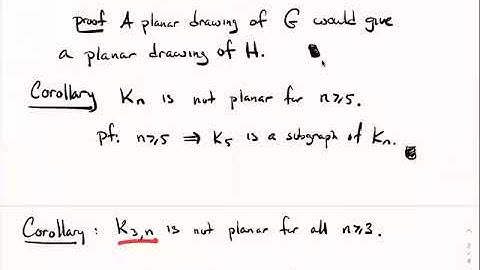 proof A planar drawing of G would give
a planar drawing of H.
Corollary Kn is not planar for n≥5.
pf: n≥5 ⇒ K5 is a subgraph of Kn.
Corollary: K3,n is not planar for all n≥3.